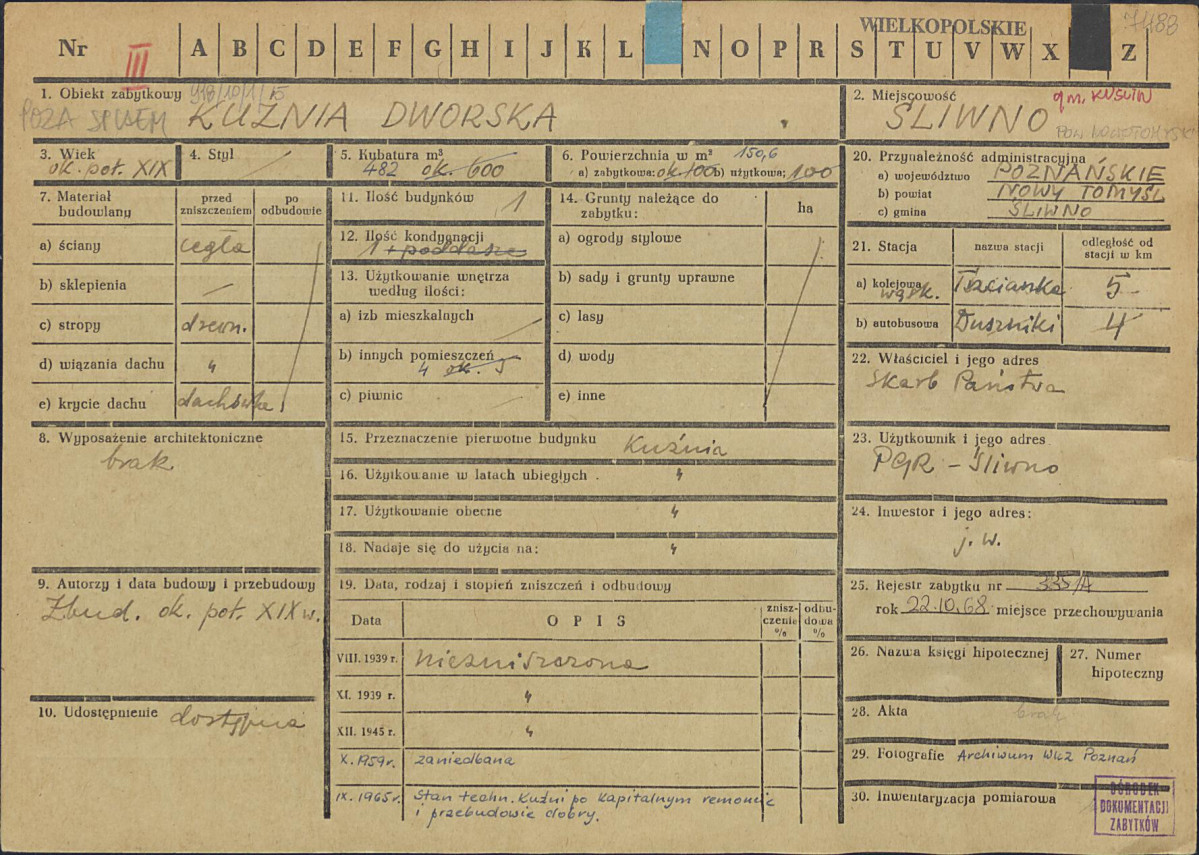 WIELKOPOLSKIE
7488
Nr III A B C D E F G H I J K L N O P R S T U V W X Z
1. Obiekt zabytkowy
POZA SPISEM KUŹNIA DWORSKA
2. Miejscowość gm. KUŚLIN
ŚLIWNO
3. Wiek
ok. poł. XIX
4. Styl
5. Kubatura m³
482 ok. 600
6. Powierzchnia w m² 150,6
a) zabytkowa: ok. 100 b) użytkowa: 100
20. Przynależność administracyjna
a) województwo POZNAŃSKIE
b) powiat NOWY TOMYŚL
c) gmina ŚLIWNO
7. Materiał budowlany
przed zniszczeniem
po odbudowie
a) ściany cegła
b) sklepienia —
c) stropy drewn.
d) wiązania dachu "
e) krycie dachu dachówka
11. Ilość budynków 1
12. Ilość kondygnacji
1 + poddasze
13. Użytkowanie wnętrza
według ilości:
a) izb mieszkalnych
b) innych pomieszczeń
4 ok. 5
c) piwnic
14. Grunty należące do
zabytku:
ha
a) ogrody stylowe
b) sady i grunty uprawne
c) lasy
d) wody
e) inne
21. Stacja
nazwa stacji
odległość od
stacji w km
a) kolejowa
wąsk. 5
b) autobusowa Duszniki 4
22. Właściciel i jego adres
Skarb Państwa
8. Wyposażenie architektoniczne
brak
15. Przeznaczenie pierwotne budynku Kuźnia
16. Użytkowanie w latach ubiegłych . "
17. Użytkowanie obecne "
18. Nadaje się do użycia na: "
23. Użytkownik i jego adres
PGR – Śliwno
24. Inwestor i jego adres:
j. w.
9. Autorzy i data budowy i przebudowy
Zbud. ok. poł. XIX w.
10. Udostępnienie dostępna
19. Data, rodzaj i stopień zniszczeń i odbudowy
Data
OPIS
znisz-
czenie
%
odbu-
dowa
%
VIII. 1939 r. niezniszczona
XI. 1939 r. "
XII. 1945 r. "
X. 1959r. zaniedbana
IX. 1965r. Stan techn. Kuźni po kapitalnym remoncie
i przebudowie dobry.
25. Rejestr zabytku nr 335/A
rok 22.10.68 miejsce przechowywania
26. Nazwa księgi hipotecznej
27. Numer
hipoteczny
28. Akta brak
29. Fotografie Archiwum WKZ Poznań
30. Inwentaryzacja pomiarowa
OŚRODEK
DOKUMENTACJI
ZABYTKÓW